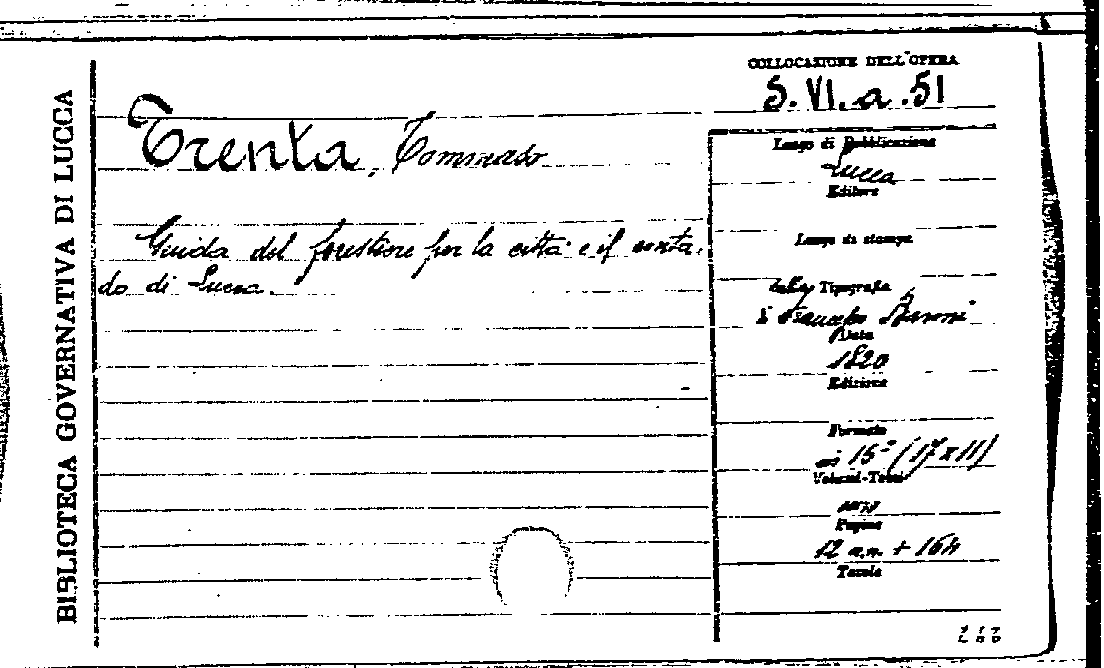 BIBLIOTECA GOVERNATIVA DI LUCCA
COLLOCAZIONE DELL'OPERA
S. VI. a. 51
Trenta, Tommaso
Guida del forestiere per la città e il conta-
do di Lucca.
Luogo di Pubblicazione
Lucca
Editore
Luogo di stampa
dalla Tipografia
di Francesco Baroni
Data
1820
Edizione
Formato
in 15° (17x11)
Volumi-Tomi
uno
Pagine
12 n.n. + 164
Tavole